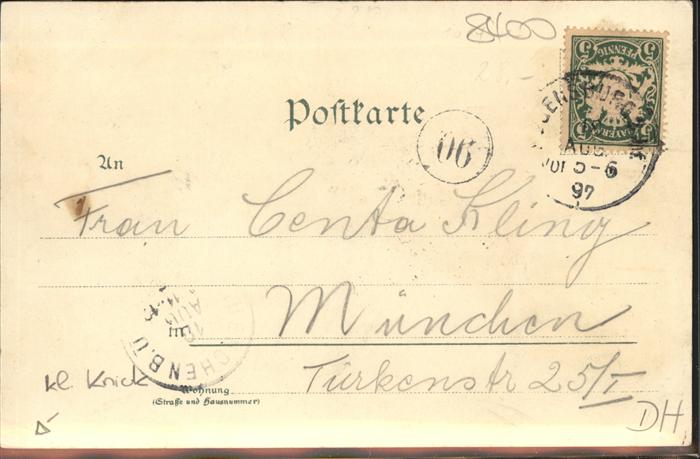 8400
5 PFENNIG 5
BAYERN
Postkarte
06
AUG.
5-6
97
An
Frau Centa Kling
in München
MÜNCHEN B.
AUG
kl. Knick
Wohnung
(Straße und Hausnummer)
Türkenstr 25/I
DH